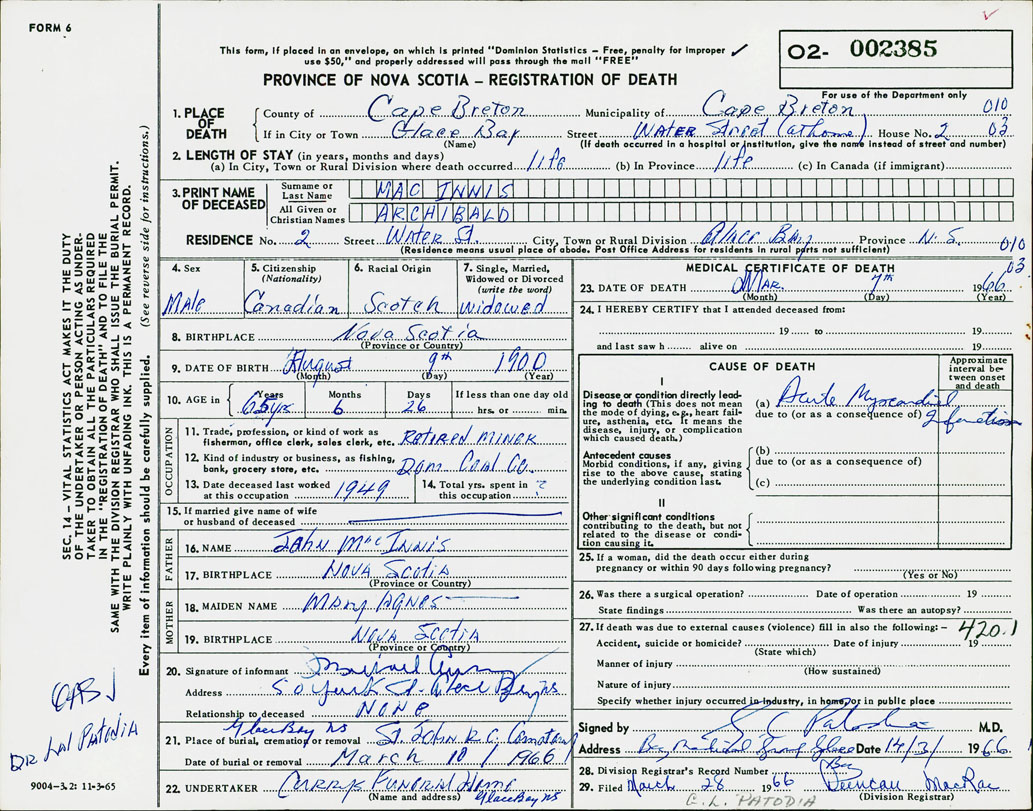 FORM 6
This form, if placed in an envelope, on which is printed "Dominion Statistics – Free, penalty for improper
use $50," and properly addressed will pass through the mail "FREE"
PROVINCE OF NOVA SCOTIA – REGISTRATION OF DEATH
O2- 002385
For use of the Department only
1. PLACE OF DEATH
County of Cape Breton Municipality of Cape Breton 010
If in City or Town Glace Bay Street Water Street (at home) House No. 2 03
(Name) (If death occurred in a hospital or institution, give the name instead of street and number)
2. LENGTH OF STAY (in years, months and days)
(a) In City, Town or Rural Division where death occurred life (b) In Province life (c) In Canada (if immigrant)
3. PRINT NAME OF DECEASED
Surname or Last Name MAC INNIS
All Given or Christian Names ARCHIBALD
RESIDENCE No. 2 Street Water St. City, Town or Rural Division Glace Bay Province N.S. 010
(Residence means usual place of abode. Post Office Address for residents in rural parts not sufficient)
03
4. Sex
Male
5. Citizenship (Nationality)
Canadian
6. Racial Origin
Scotch
7. Single, Married, Widowed or Divorced (write the word)
widowed
8. BIRTHPLACE Nova Scotia
(Province or Country)
9. DATE OF BIRTH August 9th 1900
(Month) (Day) (Year)
10. AGE in Years Months Days If less than one day old
65 yrs 6 26 hrs. or min.
OCCUPATION
11. Trade, profession, or kind of work as
fisherman, office clerk, sales clerk, etc. Retired Miner
12. Kind of industry or business, as fishing,
bank, grocery store, etc. Dom. Coal Co.
13. Date deceased last worked
at this occupation 1949
14. Total yrs. spent in
this occupation ?
15. If married give name of wife
or husband of deceased
FATHER
16. NAME John MacInnis
17. BIRTHPLACE Nova Scotia
(Province or Country)
MOTHER
18. MAIDEN NAME Mary Agnes
19. BIRTHPLACE Nova Scotia
(Province or Country)
20. Signature of informant
Address 50 York St. Glace Bay NS
Relationship to deceased NONE
Glace Bay NS
21. Place of burial, cremation or removal St. John R.C. Cemetery
Date of burial or removal March 10 1966
22. UNDERTAKER Currys Funeral Home
(Name and address) Glace Bay NS
MEDICAL CERTIFICATE OF DEATH
23. DATE OF DEATH Mar. 7th 1966
(Month) (Day) (Year)
24. I HEREBY CERTIFY that I attended deceased from:
19 to 19
and last saw h alive on 19
CAUSE OF DEATH
Approximate interval between onset and death
I
Disease or condition directly leading to death (This does not mean the mode of dying, e.g., heart failure, asthenia, etc. It means the disease, injury, or complication which caused death.)
(a) Acute Myocardial Infarction
due to (or as a consequence of)
Antecedent causes
Morbid conditions, if any, giving rise to the above cause, stating the underlying condition last.
(b)
due to (or as a consequence of)
(c)
II
Other significant conditions
contributing to the death, but not related to the disease or condition causing it.
25. If a woman, did the death occur either during
pregnancy or within 90 days following pregnancy?
(Yes or No)
26. Was there a surgical operation? Date of operation 19
State findings Was there an autopsy?
27. If death was due to external causes (violence) fill in also the following: – 420.1
Accident, suicide or homicide? Date of injury 19
(State which)
Manner of injury
(How sustained)
Nature of injury
Specify whether injury occurred in industry, in home, or in public place
Signed by Patodia M.D.
Address Bay Medical Group Glace Bay Date 14/3/ 1966
28. Division Registrar's Record Number
29. Filed March 28 1966 Duncan MacRae
(Division Registrar)
C. L. PATODIA
SEC. 14 – VITAL STATISTICS ACT MAKES IT THE DUTY
OF THE UNDERTAKER OR PERSON ACTING AS UNDER-
TAKER TO OBTAIN ALL THE PARTICULARS REQUIRED
IN THE "REGISTRATION OF DEATH" AND TO FILE THE
SAME WITH THE DIVISION REGISTRAR WHO SHALL ISSUE THE BURIAL PERMIT.
WRITE PLAINLY WITH UNFADING INK. THIS IS A PERMANENT RECORD.
Every item of information should be carefully supplied. (See reverse side for instructions.)
Dr Lal Patodia
9004-3.2: 11-3-65